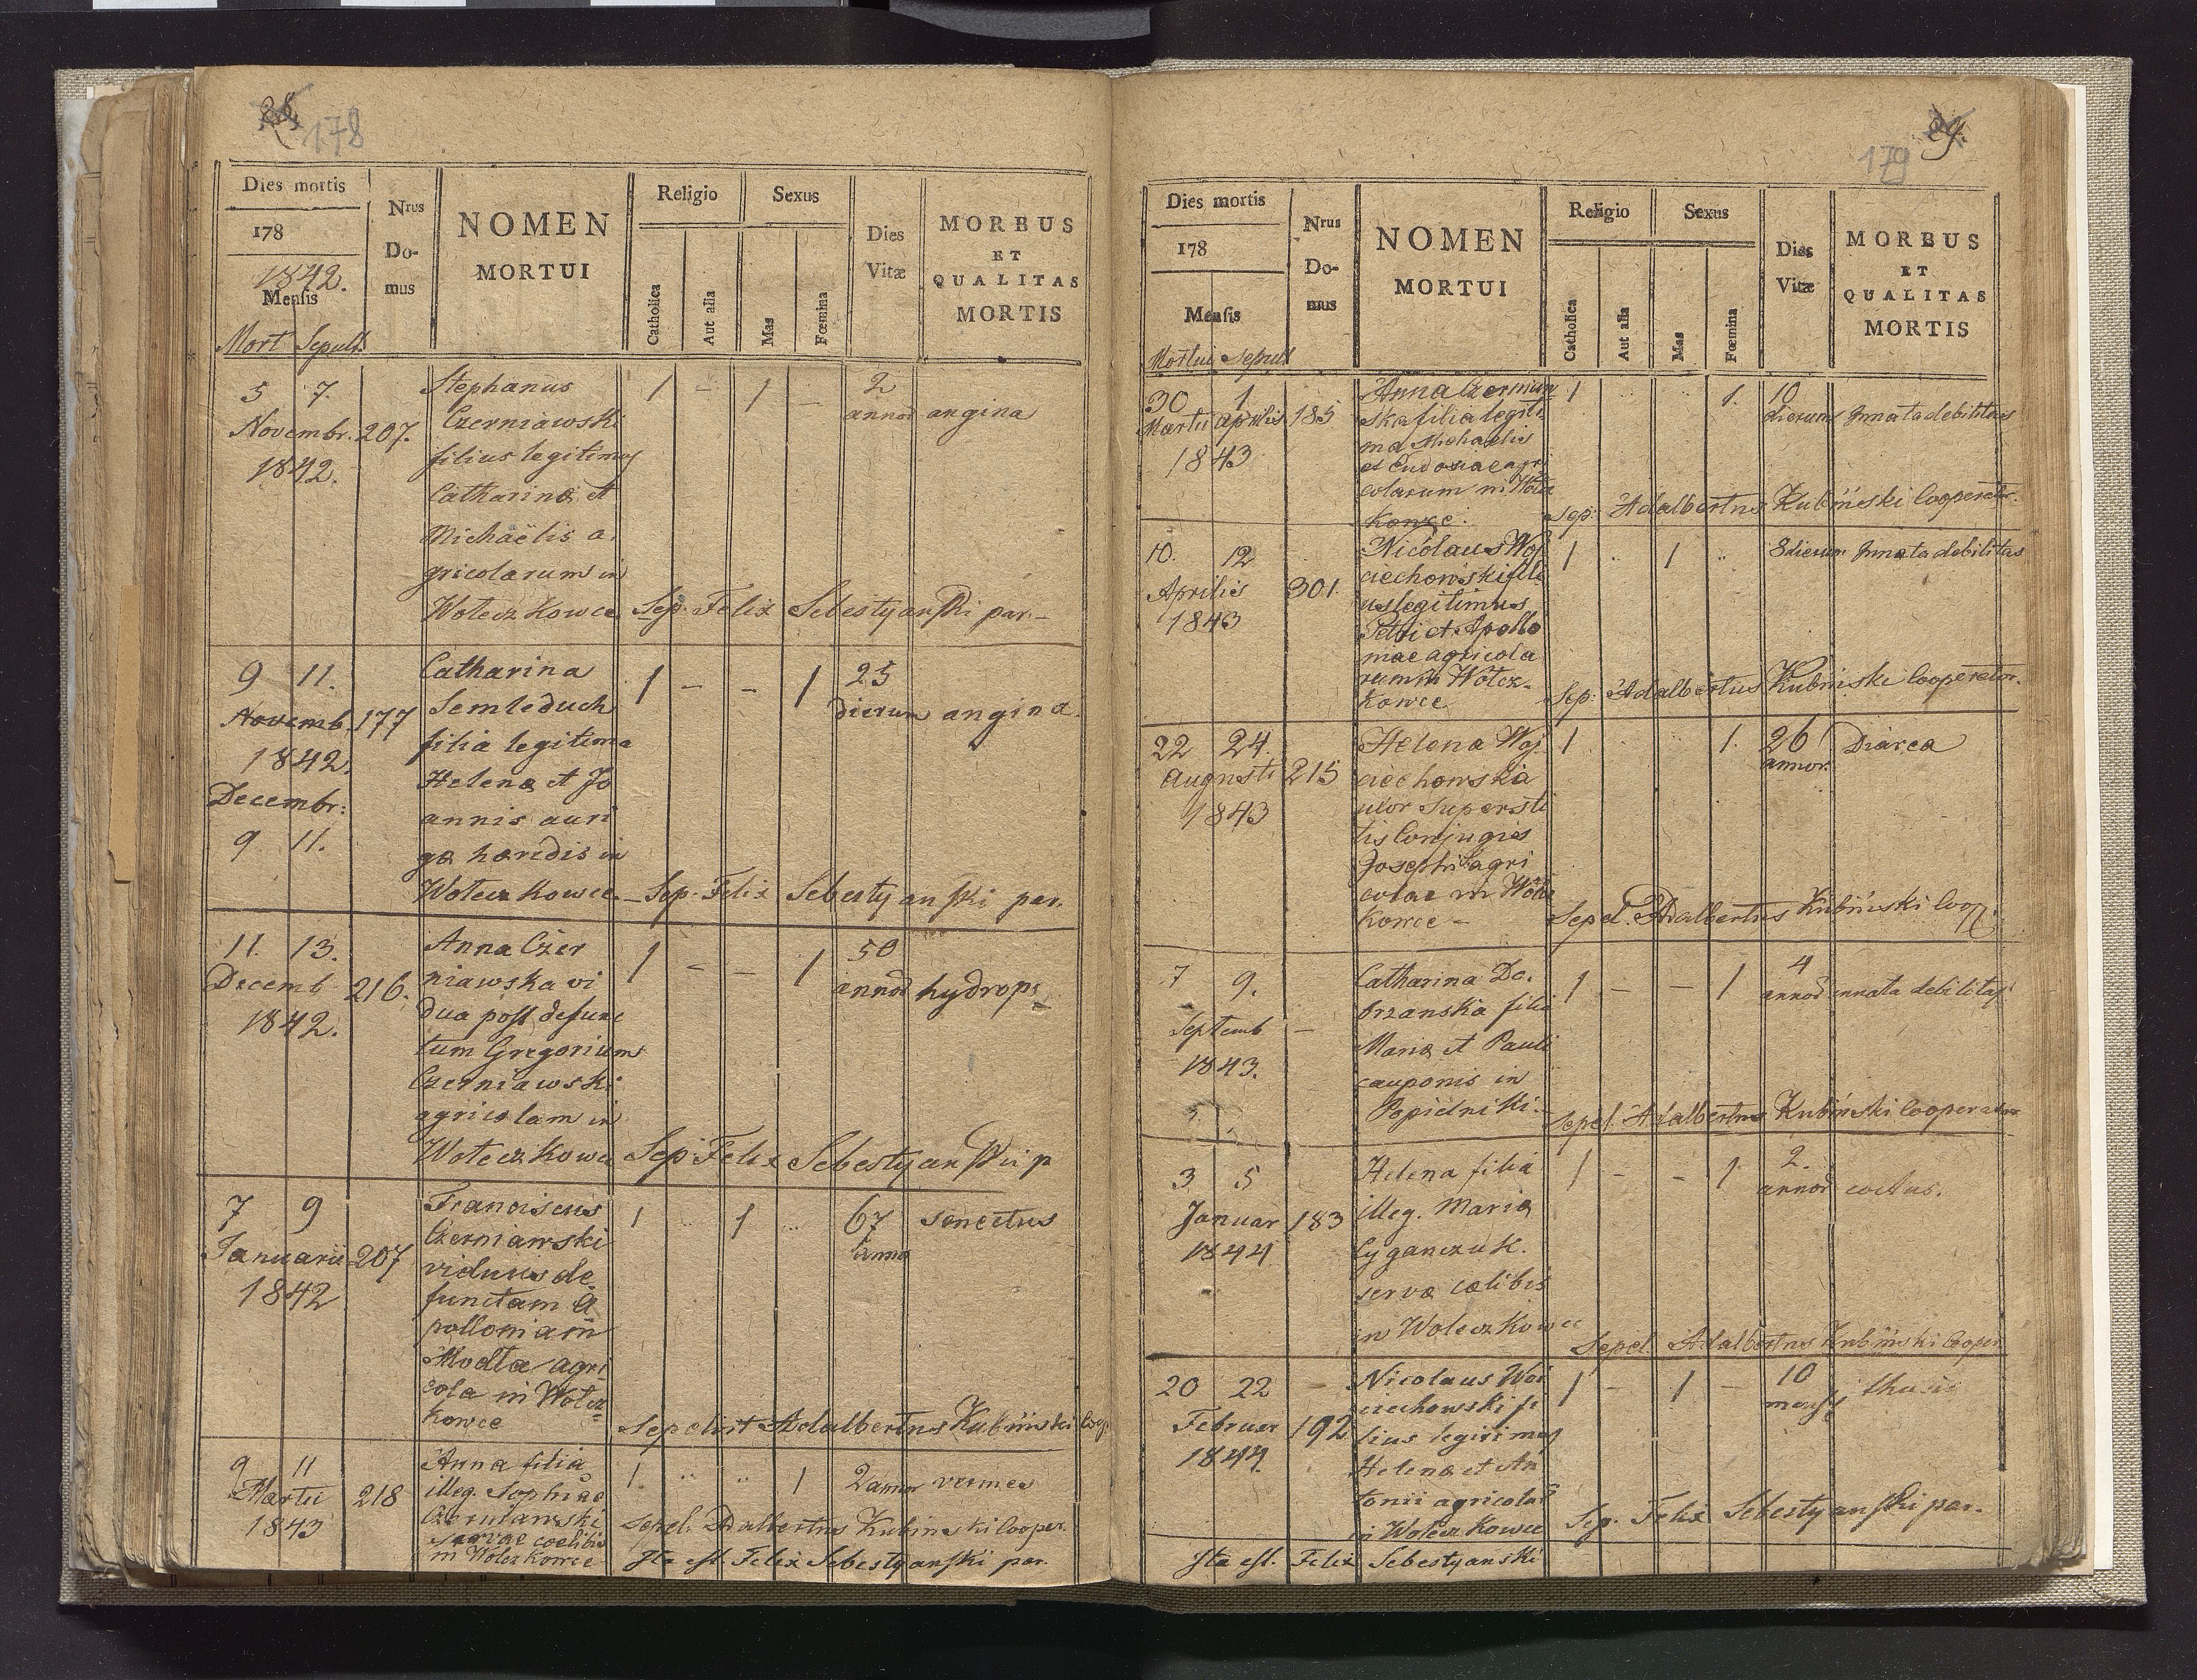 178
Dies mortis
178
1842.
Mensis
Mort Sepult.
Nrus
Do-
mus
NOMEN
MORTUI
Religio
Catholica
Aut alia
Sexus
Mas
Fœmina
Dies
Vitæ
MORBUS
ET
QUALITAS
MORTIS
5 7.
Novembr. 207.
1842.
Stephanus
Czerniawski
filius legitimus
Catharinæ et
Michaëlis a.
gricolarum in
Woleczkowce
1 - 1 -
2
annor angina
Sep. Felix Sebestyanski par.-
9 11.
Novemb. 177
1842.
Decembr:
9 11.
Catharina
Semleduch
filia legitima
Helenæ et Jo
annis auri
gæ hæredis in
Woleczkowce.
1 - - 1
25
dierum angina.
Sep. Felix Sebestyanski par.
11. 13.
Decemb 216.
1842.
Anna Czer
niawska vi
dua post defunc
tum Gregorium
Czerniawski
agricolam in
Woleczkowce
1 - - 1
50
annor hydrops
Sep. Felix Sebestyanski p
7 9
Januarii 207
1842
Franciscus
Czerniawski
viduus de
functam A
polloniam
Modla agri
cola in Wolcz
kowce
1 .. 1 ...
67 senectus
anno
Sepelivit Adalbertus Kubiński Coop.
9 11
Martii 218
1843
Anna filia
illeg. Sophiae
Czerniawski
servae coelibis
in Wolczkowce
1 .. .. 1
2 annor vermes
Sepel. Adalbertus Kubinski Cooper.
Ita est. Felix Sebestyanski par.
179
Dies mortis
178
Mensis
Mortui sepult
Nrus
Do-
mus
NOMEN
MORTUI
Religio
Catholica
Aut alia
Sexus
Mas
Fœmina
Dies
Vitæ
MORBUS
ET
QUALITAS
MORTIS
30 1
Martii Aprilis 185
1843
Anna Czerniaw
ska filia legiti
ma Michaelis
et Eudoxiae agri
colarum in Wolcz
kowce.
1 .. .. 1.
10
dierum Innata debilitas
Sep: Adalbertus Kubiński Cooperator.
10. 12
Aprilis 301.
1843
Nicolaus Woj
ciechowski fili
us legitimus
Petri et Apollo
niae agricola
rum in Wolcz-
kowce
1 .. 1 ..
8 dierum Innata debilitas
Sep: Adalbertus Kubiński Cooperator.
22 24.
Augusti 215
1843
Helena Woj
ciechowska
uxor supersti
tis Conjugis
Josephi agri
colae in Wolcz
kowce -
1 .. .. 1.
26 Diarea
annor.
Sepel. Adalbertus Kubiński Coop.
7 9.
Septemb -
1843.
Catharina Do.
brzanska filia
Mariæ et Pauli
cauponis in
Popielniki.
1 - - 1
4
annor innata debilitas
Sepel. Adalbertus Kubiński Cooperator
3 5
Januar 183
1844
Helena filia
illeg. Mariæ
Cyganczuk.
servæ cælibis
in Woleczkowce
1 - - 1.
2.
annor
Sepel. Adalbertus Kubiński Cooper
20 22
Februar 192
1844.
Nicolaus Woi
ciechowski fi
lius legitimus
Helenæ et An
tonii agricolar
in Woleczkowce
1 - 1 -
10
mens
Sep. Felix Sebestyanski par.
Ita est. Felix Sebestyanski